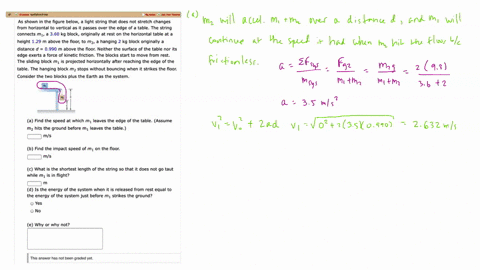 As shown in the figure below, a light string that does not stretch changes
from horizontal to vertical as it passes over the edge of a table. The string
connects m₁, a 3.60 kg block, originally at rest on the horizontal table at a
height 1.29 m above the floor, to m₂, a hanging 2 kg block originally a
distance d = 0.990 m above the floor. Neither the surface of the table nor its
edge exerts a force of kinetic friction. The blocks start to move from rest.
The sliding block m₁ is projected horizontally after reaching the edge of the
table. The hanging block m₂ stops without bouncing when it strikes the floor.
Consider the two blocks plus the Earth as the system.
(a) Find the speed at which m₁ leaves the edge of the table. (Assume
m₂ hits the ground before m₁ leaves the table.)
m/s
(b) Find the impact speed of m₁ on the floor.
m/s
(c) What is the shortest length of the string so that it does not go taut
while m₁ is in flight?
m
(d) Is the energy of the system when it is released from rest equal to
the energy of the system just before m₁ strikes the ground?
Yes
No
(e) Why or why not?
This answer has not been graded yet.
m₂ will accel. m₁+m₂ over a distance d, and m₁ will
continue at the speed it had when m₂ hit the floor b/c
frictionless.
a = ΣFsys / msys = Fg2 / m₁+m₂ = m₂g / m₁+m₂ = 2(9.8) / 3.6+2
a = 3.5 m/s²
v₁² = v₀² + 2ad v₁ = √0²+2(3.5)(0.990) = 2.632 m/s